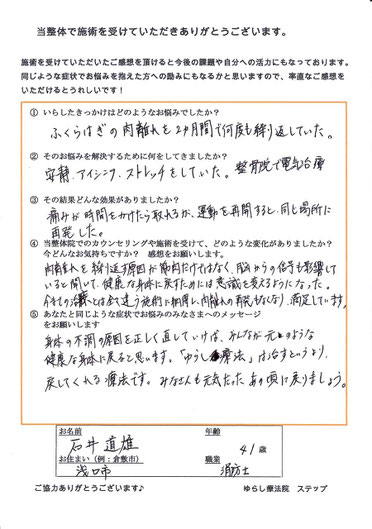 当整体で施術を受けていただきありがとうございます。
施術を受けていただいたご感想を頂けると今後の課題や自分への活力にもなっております。
同じような症状でお悩みを抱えた方への励みにもなるかと思いますので、率直なご感想を
いただけるとうれしいです！
① いらしたきっかけはどのようなお悩みでしたか？
ふくらはぎの肉離れを2ヶ月間で何度も繰り返していた。
② そのお悩みを解決するために何をしてきましたか？
安静、アイシング、ストレッチをしていた。整骨院で電気治療
③ その結果どんな効果がありましたか？
痛みが時間をかけたら取れるが、運動を再開すると同じ場所に
再発した。
④ 当整体院でのカウンセリングや施術を受けて、どのような変化がありましたか？
今どんなお気持ちですか？ 感想をお願いします。
肉離れを繰り返す原因が筋肉だけではなく、脳からの信号も影響して
いると聞いて、健康な身体に戻すためには意識を変えるようになった。
今までの治療とは全く違う施術に納得し、肉離れの再発もなくなり、満足しています。
⑤ あなたと同じような症状でお悩みのみなさまへのメッセージ
をお願いします
身体の不調の原因を正しく直していけば、みんなが元々のような
健康な身体に戻ると思います。「ゆらし療法」は治すというより、
戻してくれる療法です。みなさんも元気だったあの頃に戻りましょう。
お名前 年齢
石井 直雄 41 歳
お住まい（例：倉敷市） 職業
浅口市 消防士
ご協力ありがとうございます♪ ゆらし療法院 ステップ